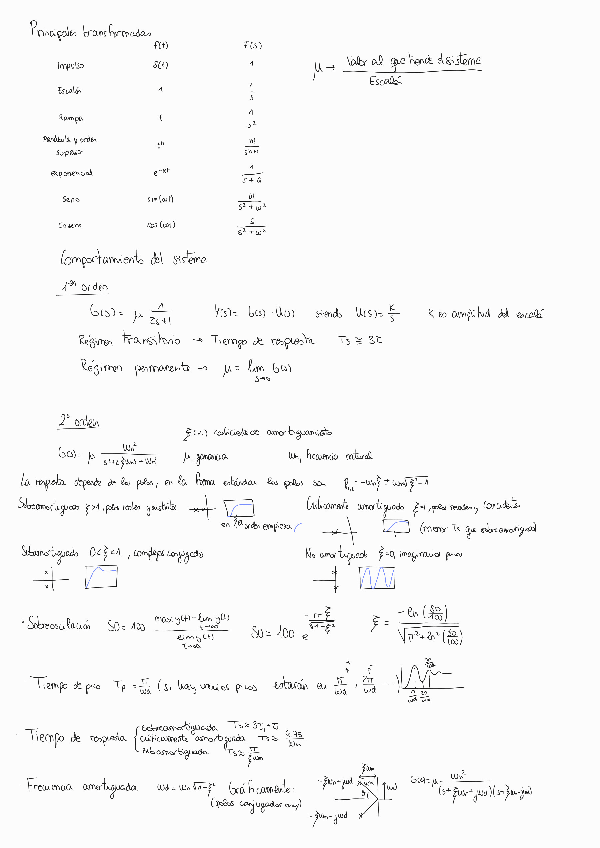 Principales transformadas
f(t) F(s)
Impulso δ(t) 1
μ → Valor al que tiende el sistema / Escalón
Escalón 1 1/s
Rampa t 1/s²
Parábola y orden superior tⁿ n!/sⁿ⁺¹
exponencial e^-at 1/(s+a)
Seno sin(ωt) ω/(s²+ω²)
Coseno cos(ωt) s/(s²+ω²)
Comportamiento del sistema
1er orden
G(s) = μ 1/(τs+1) Y(s) = G(s)·U(s) siendo U(s) = K/s K es amplitud del escalón
Régimen transitorio → Tiempo de respuesta Ts ≅ 3τ
Régimen permanente → μ = lim s→0 G(s)
2º orden
ξ coeficiente amortiguamiento
G(s) μ ωn²/(s²+2ξωns+ωn²) μ ganancia ωn frecuencia natural
La respuesta depende de los polos, en la forma estándar los polos son P1,2 = -ωnξ ± ωn√(ξ²-1)
Sobreamortiguado ξ>1, polos reales y
en 1er orden empieza
Críticamente amortiguado ξ=1, polos reales
(menor Ts que sobreamortiguado)
Subamortiguado 0<ξ<1, complejos conjugados
No amortiguado ξ=0, imaginarios puros
· Sobreoscilación SO = 100 (max y(t) - lim y(t))/(lim y(t)) t→∞ SO = 100 e^(-πξ/√(1-ξ²)) ξ = -ln(SO/100)/√(π²+ln²(SO/100))
· Tiempo de pico Tp = π/ωd (si hay varios picos estarán en π/ωd, 2π/ωd
· Tiempo de respuesta
sobreamortiguado
críticamente amortiguado Ts ≅ 4.75/ωn
subamortiguado Ts ≅ π/ξωn
· Frecuencia amortiguada ωd = ωn√(1-ξ²) Gráficamente:
(polos conjugados)
-ξωn+jωd
ξωn
ωd
-ξωn-jωd
G(s) = μ ωn²/((s+ξωn+jωd)(s+ξωn-jωd))